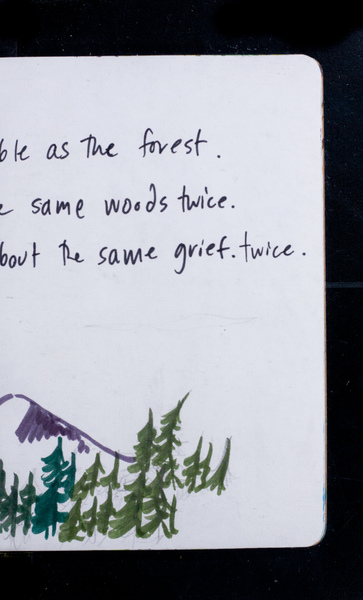 ble as the forest.
e same woods twice.
bout the same grief. twice.